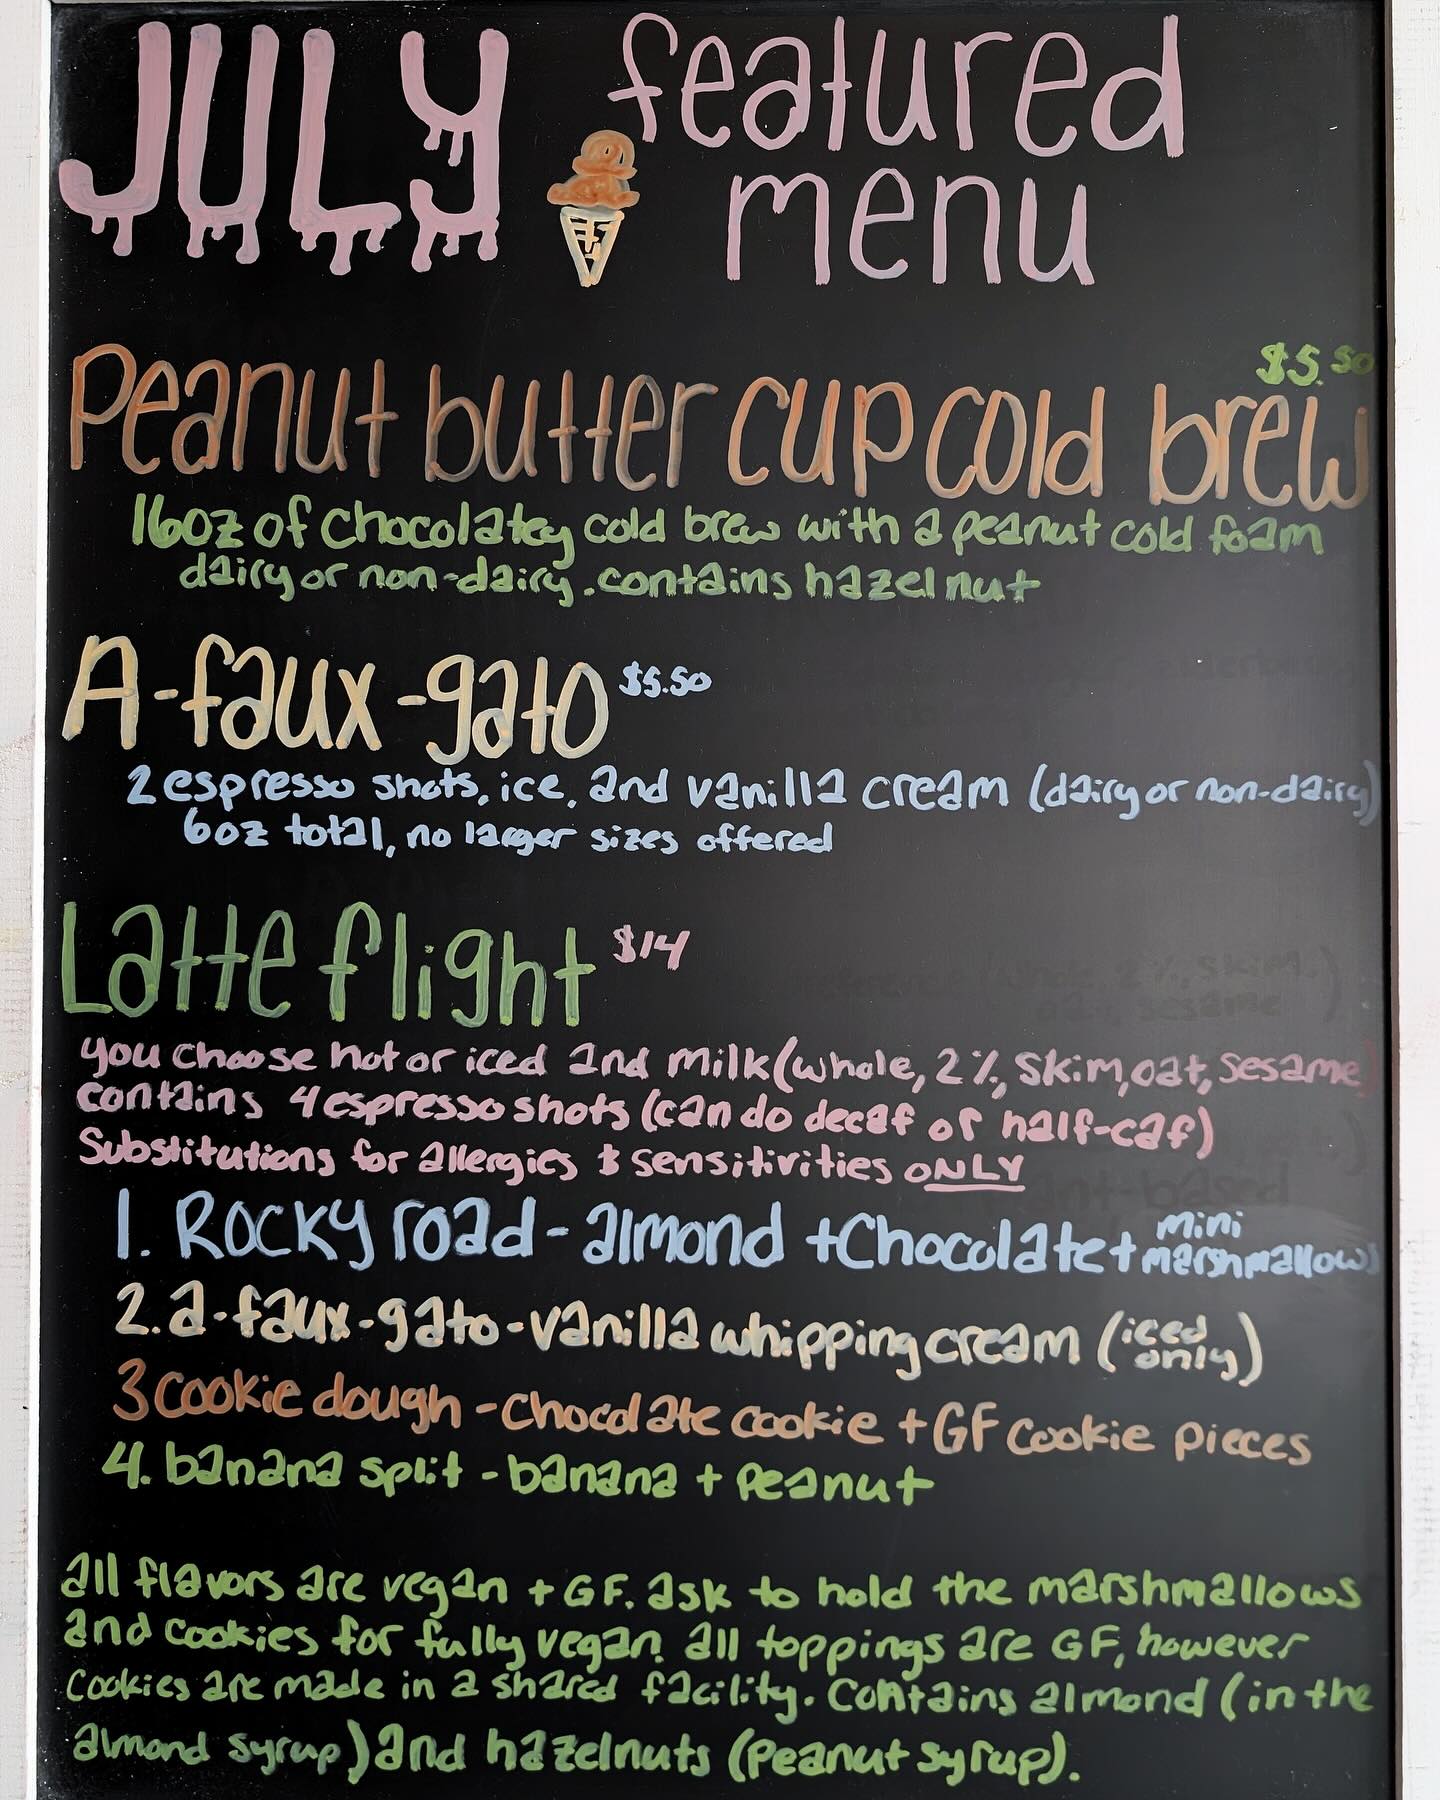 JULY featured
menu
$5.50
Peanut butter cup cold brew
16oz of chocolatey cold brew with a peanut cold foam
dairy or non-dairy. contains hazelnut
A-faux-gato $5.50
2 espresso shots, ice, and vanilla cream (dairy or non-dairy)
6oz total, no larger sizes offered
Latte flight $14
you choose hot or iced and milk (whole, 2%, skim, oat, sesame)
contains 4 espresso shots (can do decaf or half-caf)
Substitutions for allergies & sensitivities ONLY
1. Rocky road - almond + chocolate + mini marshmallows
2. a-faux-gato - vanilla whipping cream (iced only)
3 cookie dough - chocolate cookie + GF cookie pieces
4. banana split - banana + peanut
all flavors are vegan + GF. ask to hold the marshmallows
and cookies for fully vegan. all toppings are GF, however
cookies are made in a shared facility. Contains almond (in the
almond syrup) and hazelnuts (peanut syrup).